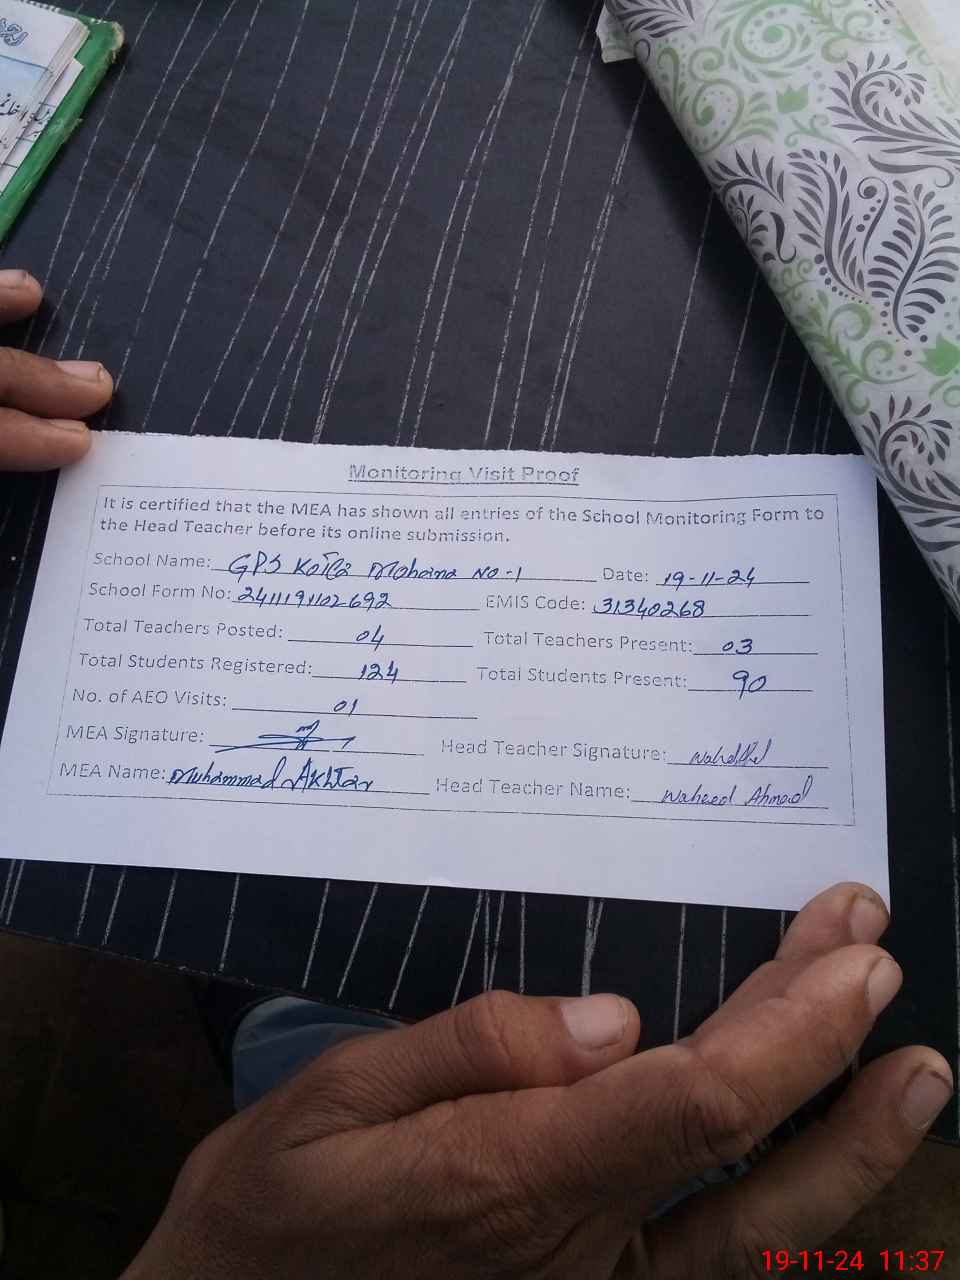 Monitoring Visit Proof
It is certified that the MEA has shown all entries of the School Monitoring Form to
the Head Teacher before its online submission.
School Name: GPS Kotla Mohana NO-1 Date: 19-11-24
School Form No: 2411191102692 EMIS Code: 31340268
Total Teachers Posted: 04 Total Teachers Present: 03
Total Students Registered: 124 Total Students Present: 90
No. of AEO Visits: 01
MEA Signature: Head Teacher Signature:
MEA Name: Muhammad Akhtar Head Teacher Name: Waheed Ahmad
19-11-24 11:37